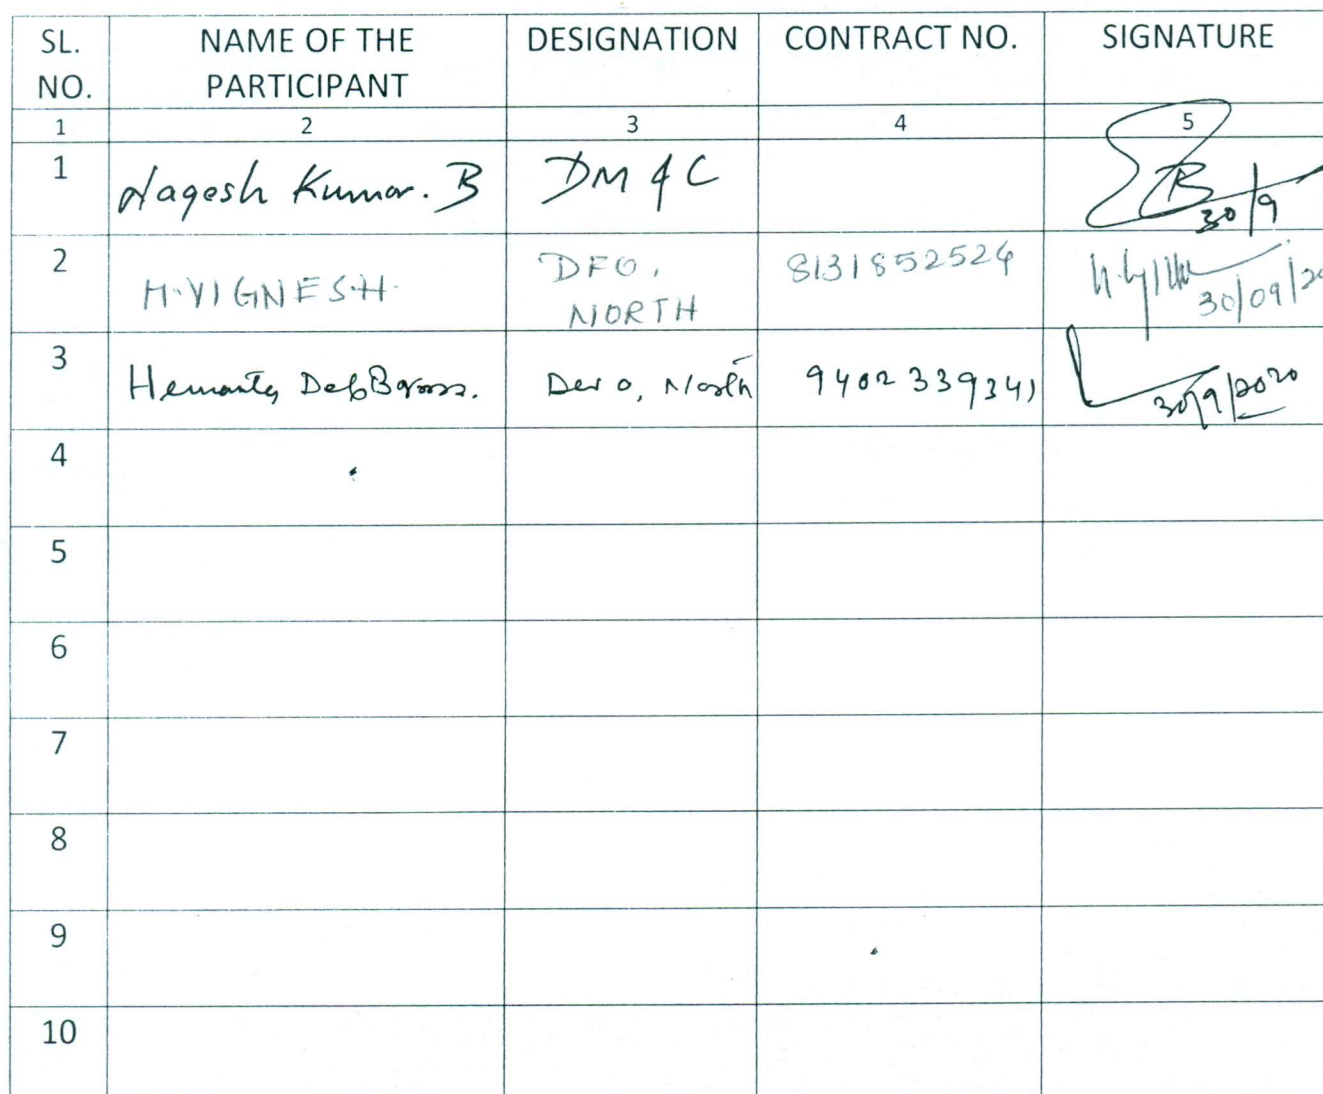 SL. NO. NAME OF THE PARTICIPANT DESIGNATION CONTRACT NO. SIGNATURE
1 2 3 4 5
1 Nagesh Kumar. B DM & C 30/9
2 H. VIGNESH. DFO, NORTH 8131852524 30/09/20
3 Hemanta DebBarma. North 9402339341 30/9/2020
4
5
6
7
8
9
10